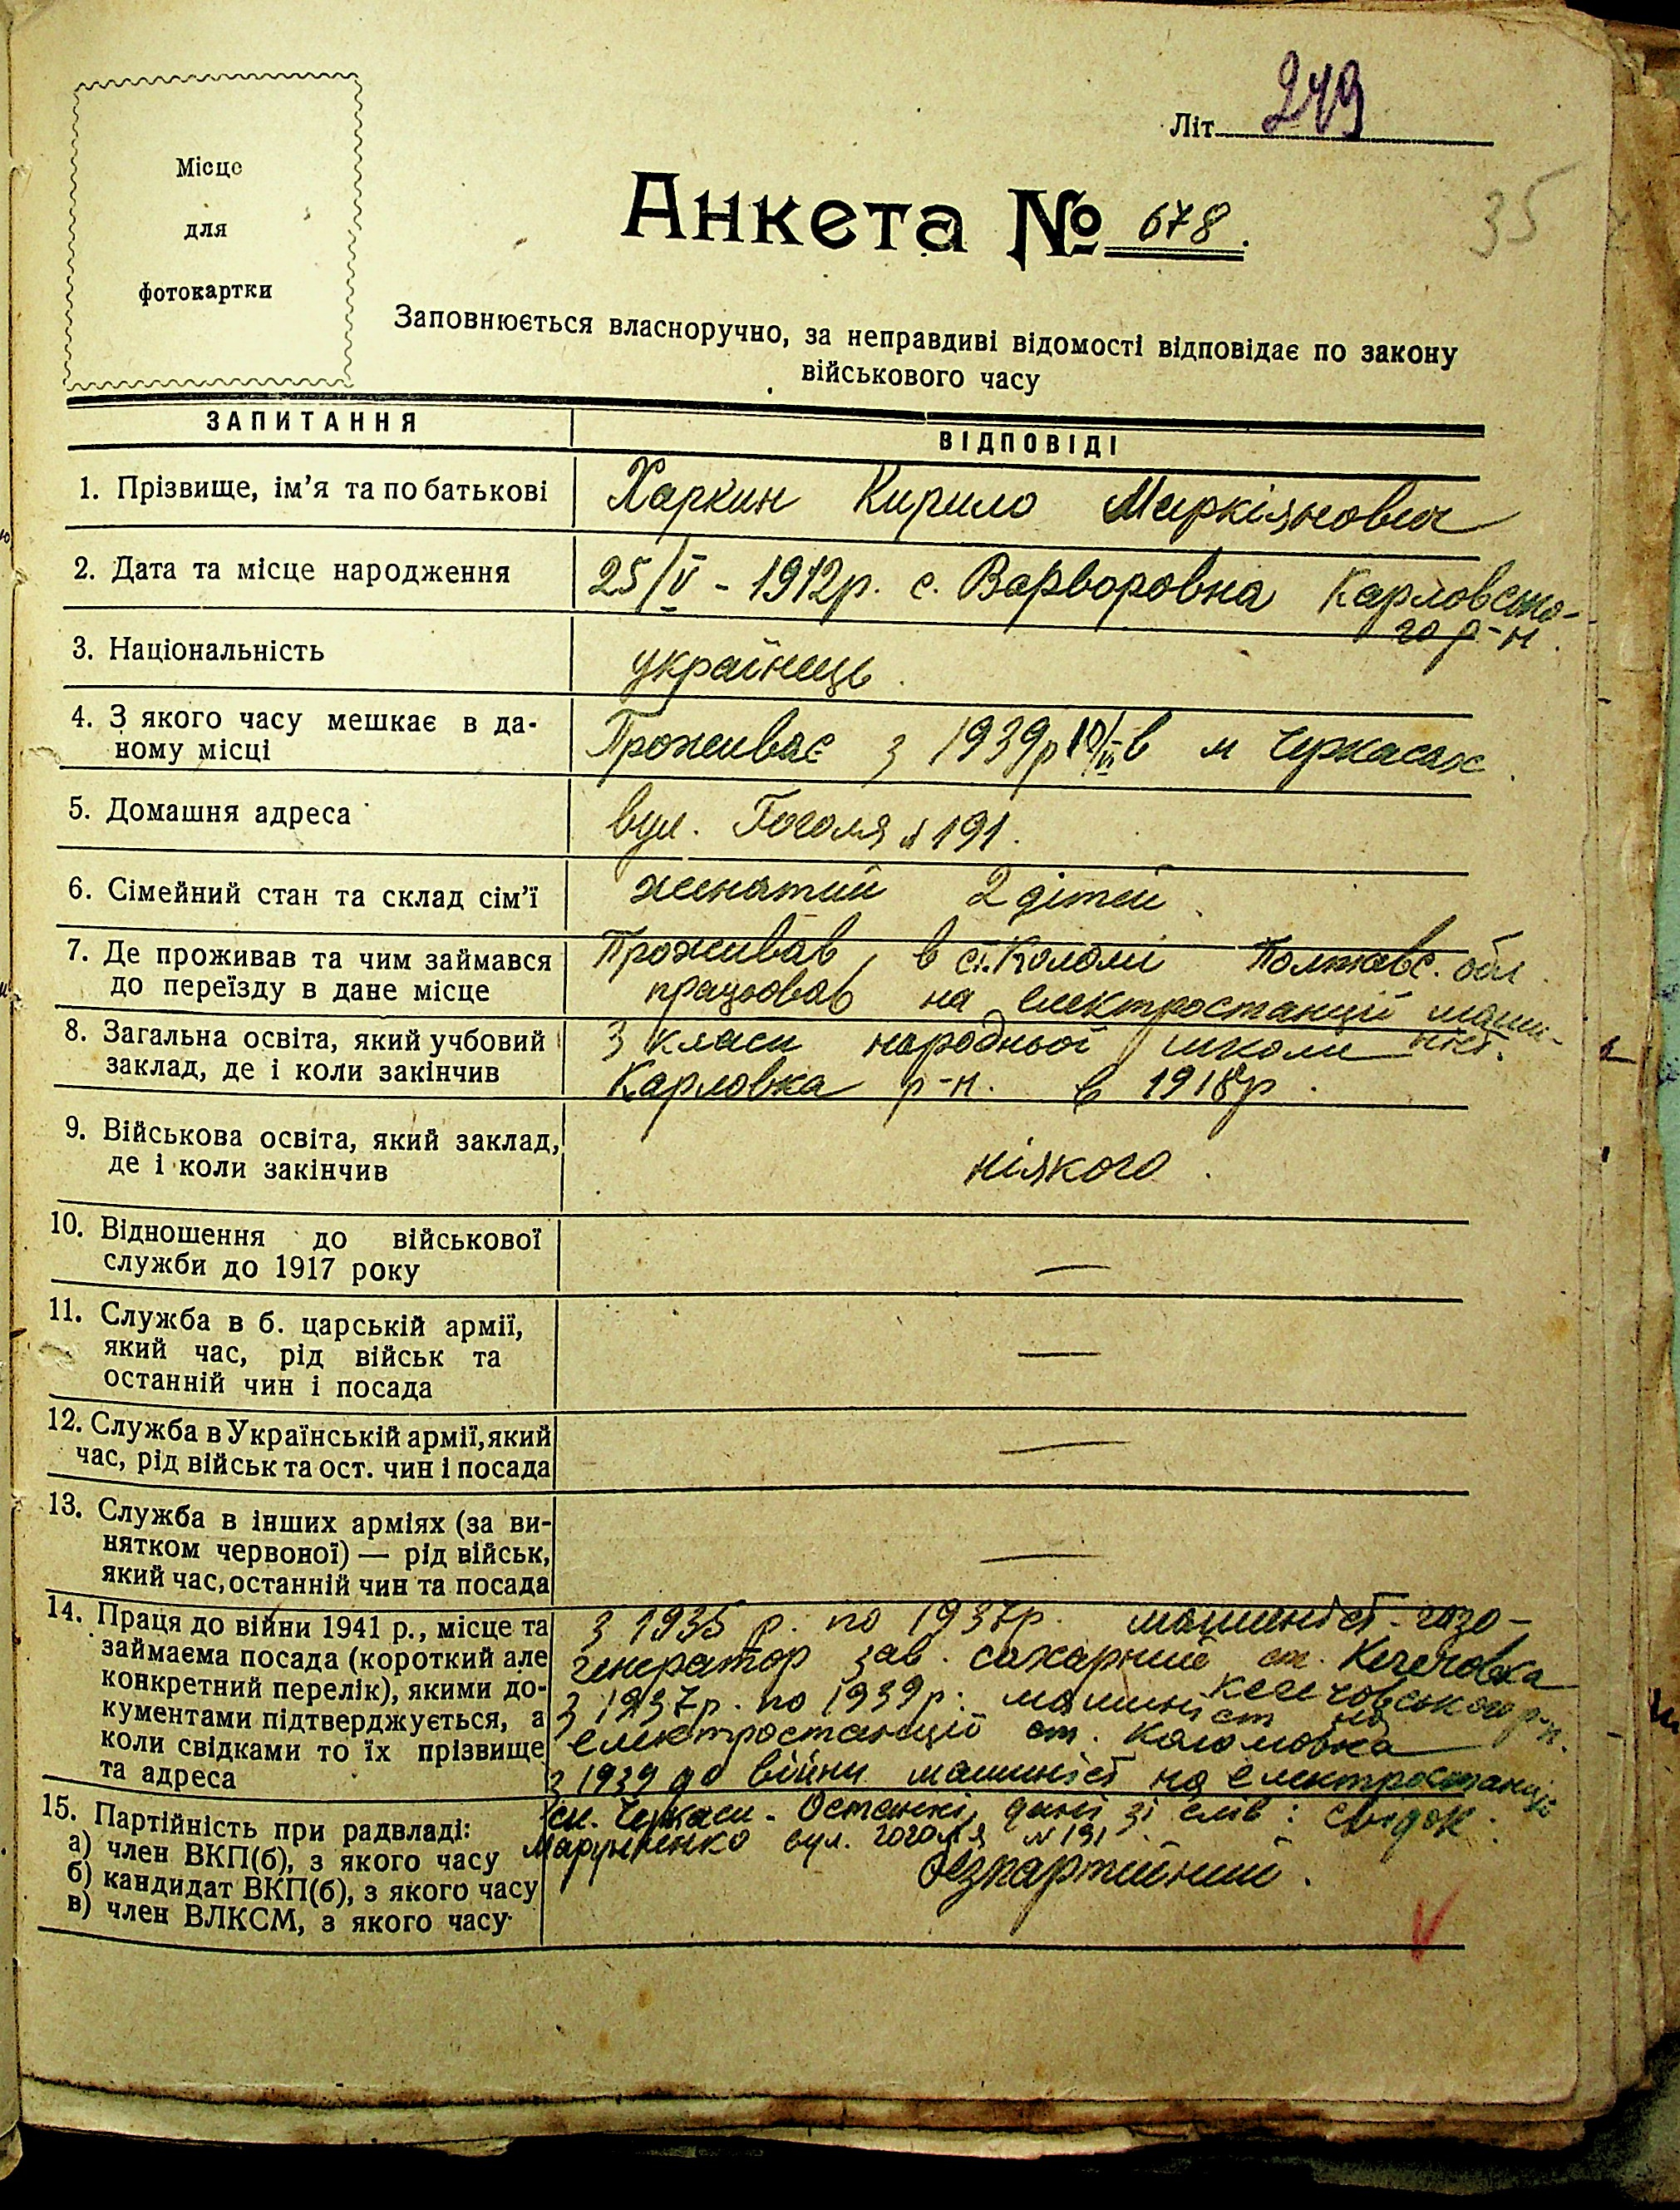 Місце
для
фотокартки
Літ. 249
35
Анкета № 678.
Заповнюється власноручно, за неправдиві відомості відповідає по закону
військового часу
ЗАПИТАННЯ
ВІДПОВІДІ
1. Прізвище, ім'я та по батькові
Харкин Кирило Маркіянович
2. Дата та місце народження
25/V - 1912р. с. Варворовна Карловсько-
го р-н.
3. Національність
українець.
4. З якого часу мешкає в да-
ному місці
Проживає з 1939р 10/VI в м Черкасах.
5. Домашня адреса
вул. Гоголя № 191.
6. Сімейний стан та склад сім'ї
женатий 2 дітей.
7. Де проживав та чим займався
до переїзду в дане місце
Проживав в ст. Коломі Полтавс. обл.
працював на електростанції маши-
ніст.
8. Загальна освіта, який учбовий
заклад, де і коли закінчив
3 класи народньої школи
Карловка р-н. в 1918р.
9. Військова освіта, який заклад,
де і коли закінчив
ніякого.
10. Відношення до військової
служби до 1917 року
—
11. Служба в б. царській армії,
який час, рід військ та
останній чин і посада
—
12. Служба в Українській армії, який
час, рід військ та ост. чин і посада
—
13. Служба в інших арміях (за ви-
нятком червоної) — рід військ,
який час, останній чин та посада
—
14. Праця до війни 1941 р., місце та
займаєма посада (короткий але
конкретний перелік), якими до-
кументами підтверджується, а
коли свідками то їх прізвище
та адреса
З 1935 р. по 1937р. машиніст-газо-
генератор зав. сахарний ст. Кегечовка
Кегечовського р-н.
З 1937р. по 1939р. машиніст на
електростанції ст. Коломовка
З 1939 до війни машиніст на електростанції
Черкаси. Останні дані зі слів: свідок.
Марунненко вул. Гоголя № 191
15. Партійність при радвладі:
а) член ВКП(б), з якого часу
б) кандидат ВКП(б), з якого часу
в) член ВЛКСМ, з якого часу
безпартійний.